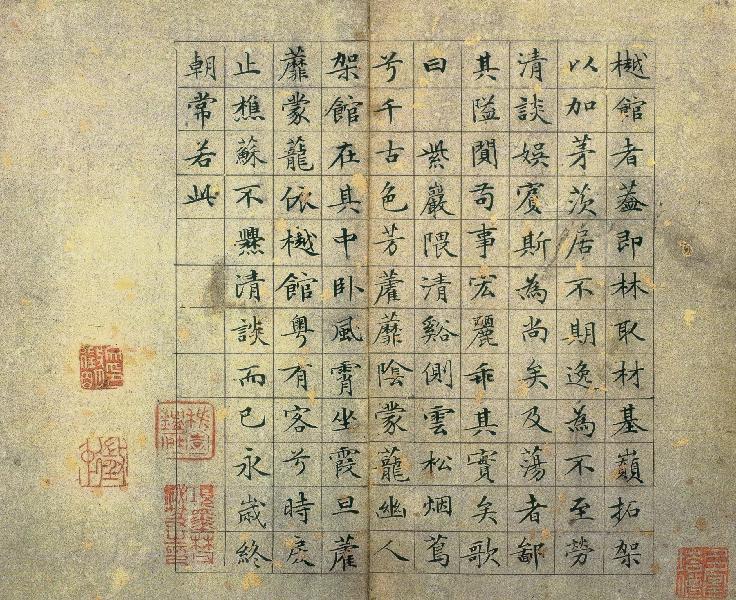 樾館者蓋即林取材基巔拓架
以加茅茨居不期逸為不至勞
清談娛賓斯為尚矣及蕩者鄙
其隘闃苟事宏麗乖其實矣歌
曰 紫巖隈清谿側雲松烟蔦
兮千古色芳藿蘼陰蒙蘢幽人
架館在其中臥風霄坐霞旦藿
蘼蒙蘢依樾館粵有客兮時戾
止樵蘇不爨清談而已永歲終
朝常若此